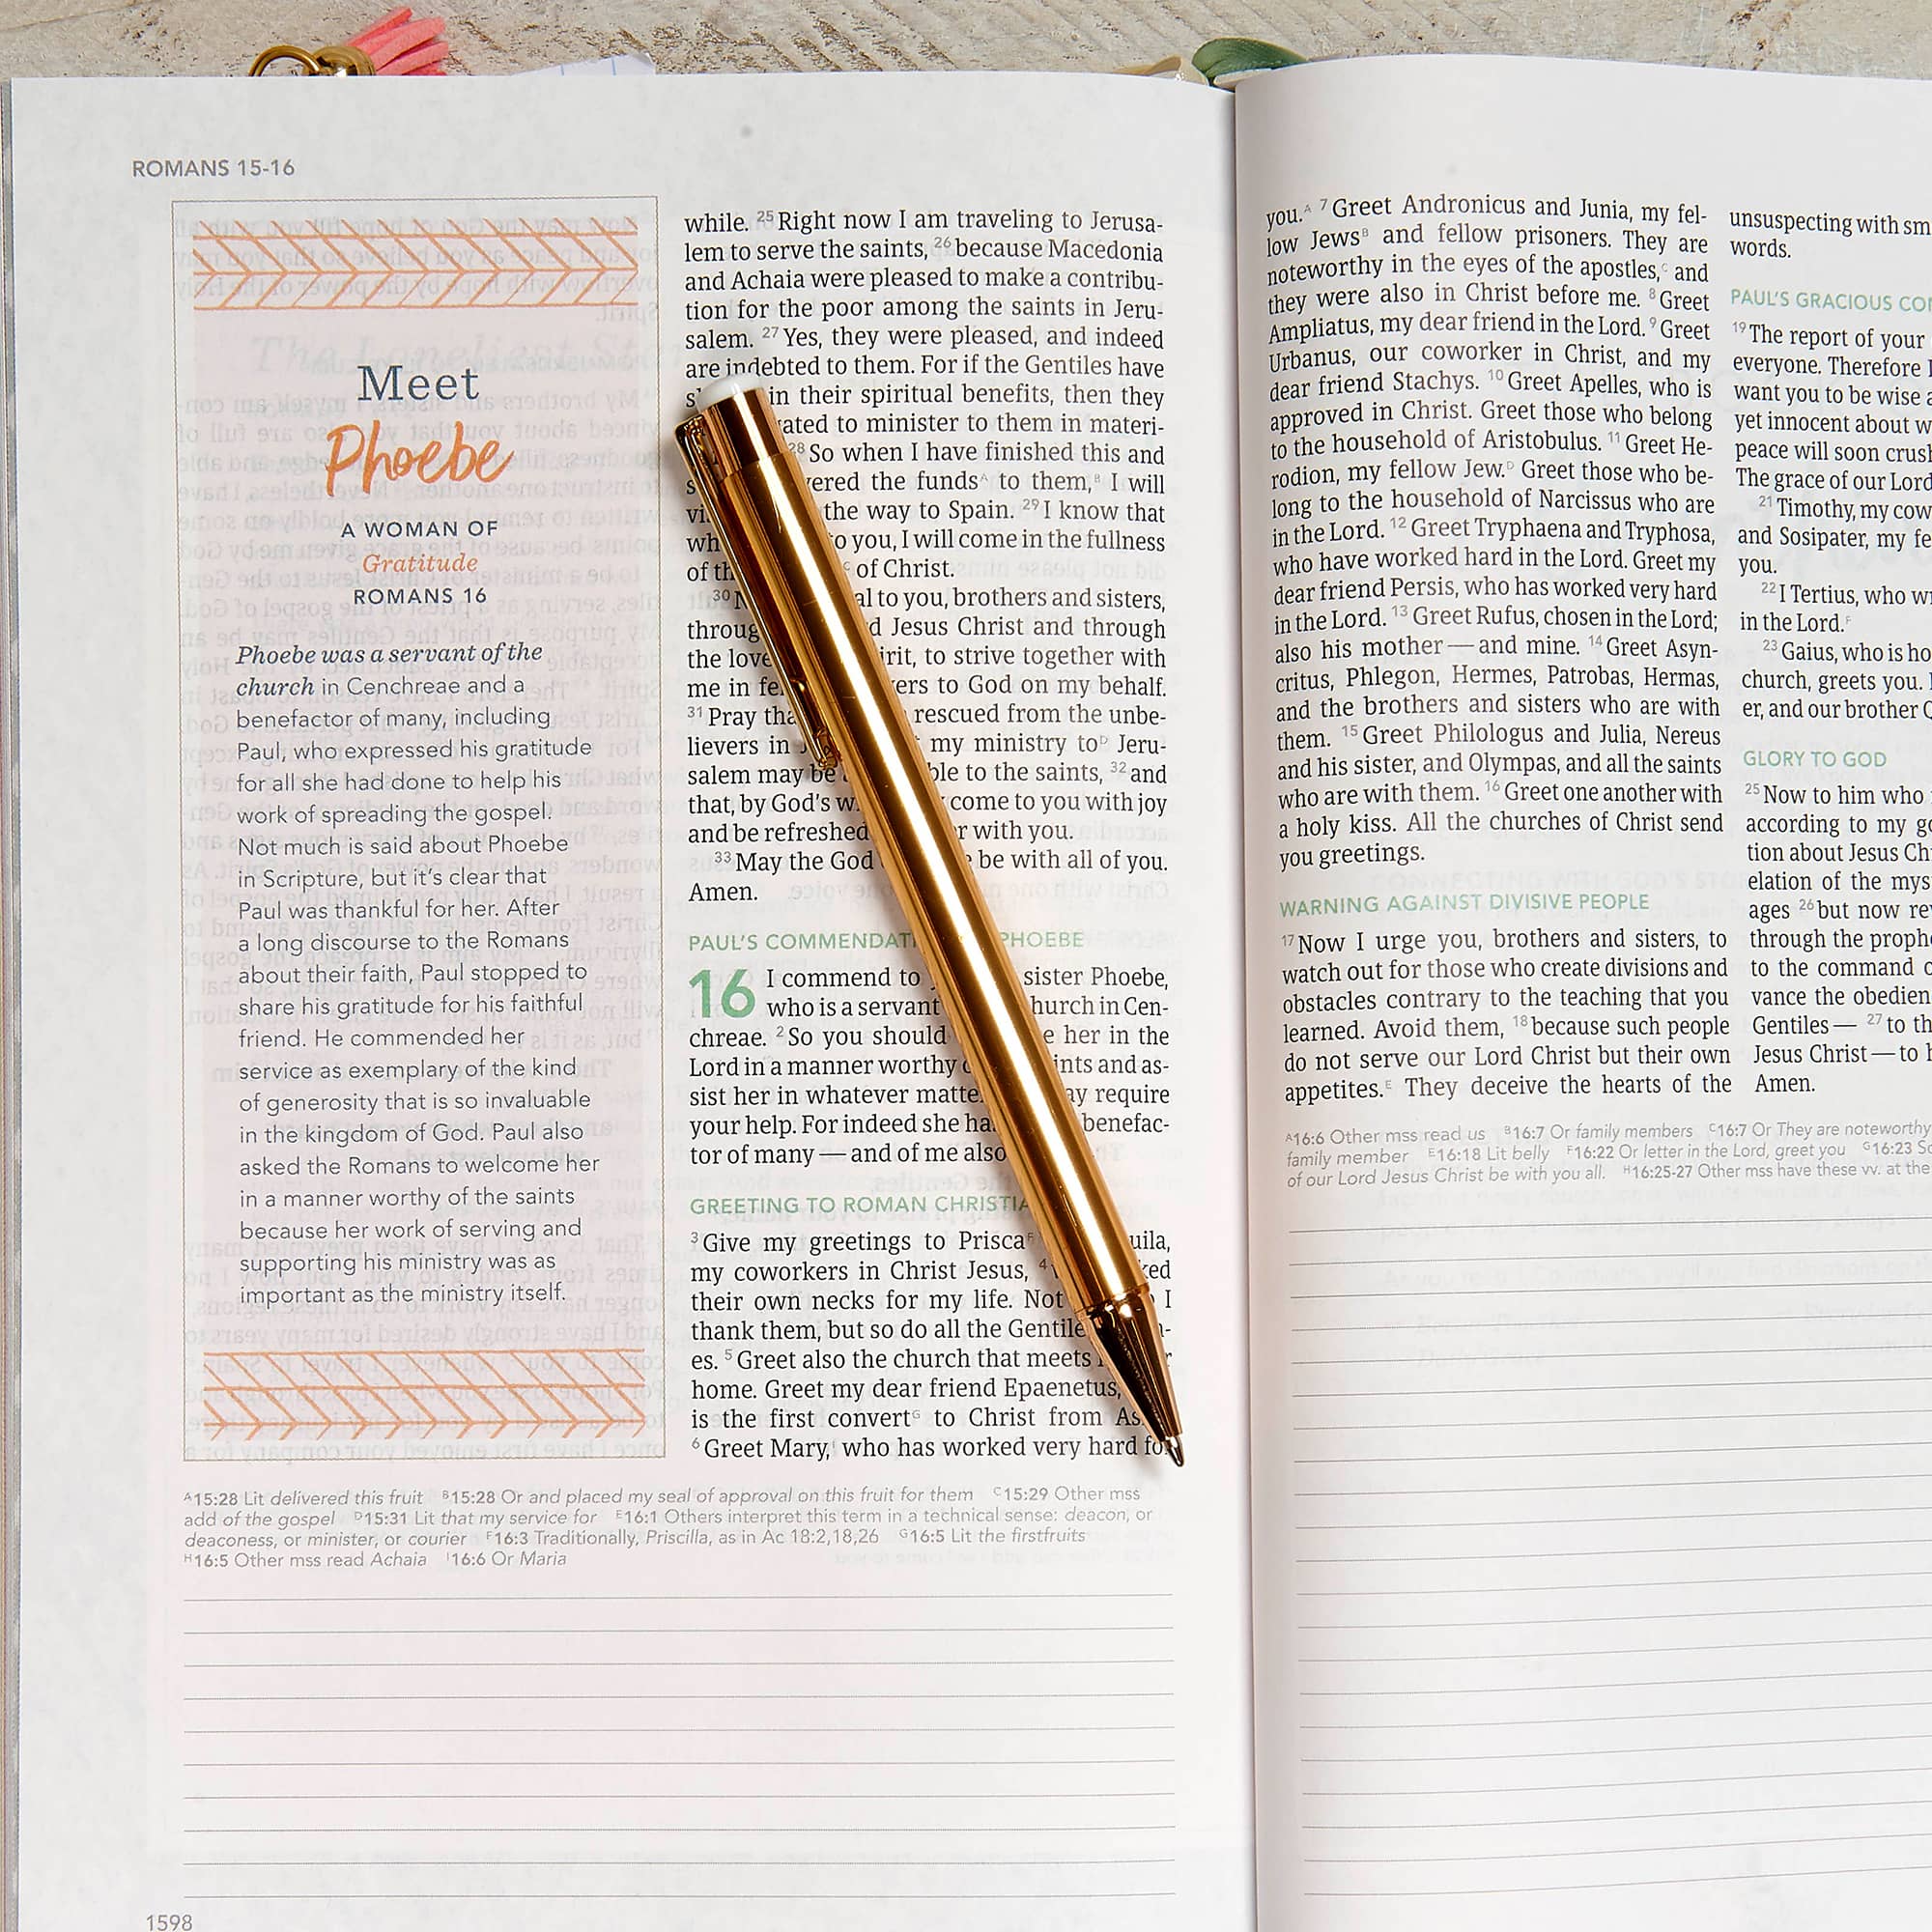 ROMANS 15-16
Meet
Phoebe
A WOMAN OF
Gratitude
ROMANS 16
Phoebe was a servant of the
church in Cenchreae and a
benefactor of many, including
Paul, who expressed his gratitude
for all she had done to help his
work of spreading the gospel.
Not much is said about Phoebe
in Scripture, but it's clear that
Paul was thankful for her. After
a long discourse to the Romans
about their faith, Paul stopped to
share his gratitude for his faithful
friend. He commended her
service as exemplary of the kind
of generosity that is so invaluable
in the kingdom of God. Paul also
asked the Romans to welcome her
in a manner worthy of the saints
because her work of serving and
supporting his ministry was as
important as the ministry itself.
while. 25 Right now I am traveling to Jerusa-
lem to serve the saints, 26 because Macedonia
and Achaia were pleased to make a contribu-
tion for the poor among the saints in Jeru-
salem. 27 Yes, they were pleased, and indeed
are indebted to them. For if the Gentiles have
in their spiritual benefits, then they
to minister to them in materi-
28 So when I have finished this and
the funds A to them, B I will
the way to Spain. 29 I know that
to you, I will come in the fullness
of C of Christ.
30 to you, brothers and sisters,
Jesus Christ and through
the love to strive together with
me in to God on my behalf.
31 Pray rescued from the unbe-
lievers in my ministry to D Jeru-
salem may be to the saints, 32 and
that, by God's come to you with joy
and be refreshed with you.
33 May the God be with all of you.
Amen.
PAUL'S PHOEBE
16 I commend to sister Phoebe,
who is a servant in Cen-
chreae. 2 So you should her in the
Lord in a manner worthy and as-
sist her in whatever require
your help. For indeed she benefac-
tor of many — and of me also
GREETING TO ROMAN
3 Give my greetings to Prisca F
my coworkers in Christ Jesus, 4
their own necks for my life. Not I
thank them, but so do all the
es. 5 Greet also the church that meets
home. Greet my dear friend Epaenetus,
is the first convert G to Christ from
6 Greet Mary, I who has worked very hard for
A 15:28 Lit delivered this fruit B 15:28 Or and placed my seal of approval on this fruit for them C 15:29 Other mss
add of the gospel D 15:31 Lit that my service for E 16:1 Others interpret this term in a technical sense: deacon, or
deaconess, or minister, or courier F 16:3 Traditionally, Priscilla, as in Ac 18:2,18,26 G 16:5 Lit the firstfruits
H 16:5 Other mss read Achaia I 16:6 Or Maria
1598
you. A 7 Greet Andronicus and Junia, my fel-
low Jews B and fellow prisoners. They are
noteworthy in the eyes of the apostles, C and
they were also in Christ before me. 8 Greet
Ampliatus, my dear friend in the Lord. 9 Greet
Urbanus, our coworker in Christ, and my
dear friend Stachys. 10 Greet Apelles, who is
approved in Christ. Greet those who belong
to the household of Aristobulus. 11 Greet He-
rodion, my fellow Jew. D Greet those who be-
long to the household of Narcissus who are
in the Lord. 12 Greet Tryphaena and Tryphosa,
who have worked hard in the Lord. Greet my
dear friend Persis, who has worked very hard
in the Lord. 13 Greet Rufus, chosen in the Lord;
also his mother — and mine. 14 Greet Asyn-
critus, Phlegon, Hermes, Patrobas, Hermas,
and the brothers and sisters who are with
them. 15 Greet Philologus and Julia, Nereus
and his sister, and Olympas, and all the saints
who are with them. 16 Greet one another with
a holy kiss. All the churches of Christ send
you greetings.
WARNING AGAINST DIVISIVE PEOPLE
17 Now I urge you, brothers and sisters, to
watch out for those who create divisions and
obstacles contrary to the teaching that you
learned. Avoid them, 18 because such people
do not serve our Lord Christ but their own
appetites. E They deceive the hearts of the
unsuspecting with
words.
PAUL'S GRACIOUS
19 The report of your
everyone. Therefore
want you to be wise
yet innocent about
peace will soon
The grace of our Lord
21 Timothy, my
and Sosipater, my
you.
22 I Tertius, who
in the Lord. F
23 Gaius, who is
church, greets you.
er, and our brother
GLORY TO GOD
25 Now to him who
according to my
tion about Jesus
elation of the
ages 26 but now
through the
to the command
vance the
Gentiles — 27 to
Jesus Christ — to
Amen.
A 16:6 Other mss read us B 16:7 Or family members C 16:7 Or They are noteworthy
family member E 16:18 Lit belly F 16:22 Or letter in the Lord, greet you G 16:23
of our Lord Jesus Christ be with you all. H 16:25-27 Other mss have these vv. at the